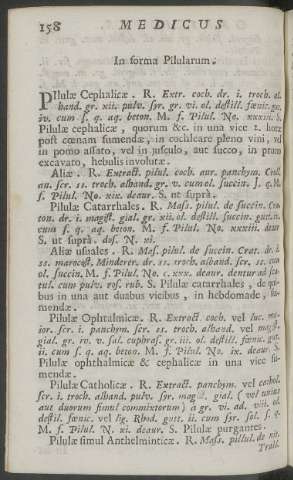 158 MEDICUS
In forma Pilularum.
Pilulæ Cephalicæ. R. Extr. coch. dr. i. troch. al.
hand. gr. xii. pulv. syr. gr. vi. ol. destill. fœnic. gutt.
iv. cum s. q. aq. beton. M. f. Pilul. No. xxxiii. S.
Pilulæ cephalicæ, quorum &c. in una vice 2. horæ
post cœnam sumendæ, in cochleare pleno vini, vel
in pomo assato, vel in jusculo, aut succo, in pruno
excavato, hebulis involutæ.
Aliæ. R. Extract. pilul. coch. aur. panchym.
an. scr. ss. troch. alhand. gr. v. cum ol. succin. q. s. M.
f. Pilul. No. xii. deaur. S. ut suprà.
Pilulæ Catarrhales. R. Mass. pilul. de succin. Cra-
ton. dr. i. magist. gial. gr. xii. ol. destill. succin. gutt. iv.
cum s. q. aq. beton. M. f. Pilul. No. xxxiii. deaur.
S. ut suprà. dos. N. xi.
Aliæ usuales. R. Mass. pilul. de succin. Crat. dr. i.
ss. marocost. Minderer. dr. ss. troch. alhand. scr. ss. cum
ol. succin. M. f. Pilul. No. c. xxx. deaur. dentur ad sca-
tul. cum pulv. ros. rub. S. Pilulæ catarrhales, de qui-
bus in una aut duabus vicibus, in hebdomade, su-
mendæ.
Pilulæ Ophtalmicæ. R. Extract. coch. vel luc. ma-
ior. scr. i. panchym. scr. ss. troch. alhand. vel magist.
gial. gr. iv. v. sal. euphras. gr. iii. ol. destill. fœnic. gutt.
ii. cum s. q. aq. beton. M. f. Pilul. No. ix. deaur. S.
Pilulæ ophthalmicæ & cephalicæ in una vice su-
mendæ.
Pilulæ Catholicæ. R. Extract. panchym. vel cathol.
scr. i. troch. alhand. pulv. syr. magist. gial. (vel unius
aut duorum simul commixtorum) à gr. vi. ad. viii. ol.
destill. fœnic. vel lig. Rhod. gutt. ii. cum syr. sol. s. q.
M. f. Pilul. N. xi. deaur. S. Pilulæ purgantes.
Pilulæ simul Anthelminticæ. R. Mass. pillul. de nit.
Trall.